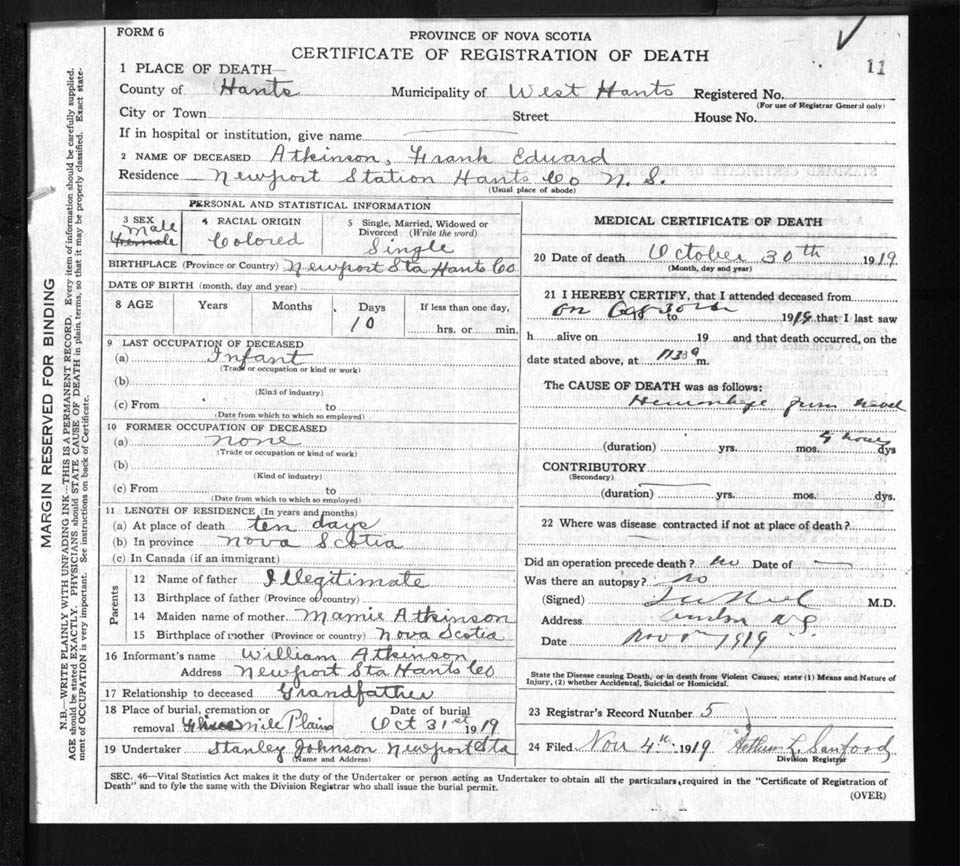 FORM 6
PROVINCE OF NOVA SCOTIA
CERTIFICATE OF REGISTRATION OF DEATH
11
1 PLACE OF DEATH—
County of Hants Municipality of West Hants Registered No.
(For use of Registrar General only)
City or Town Street House No.
If in hospital or institution, give name
2 NAME OF DECEASED Atkinson, Frank Edward
Residence Newport Station Hants Co N. S.
(Usual place of abode)
PERSONAL AND STATISTICAL INFORMATION
3 SEX
Male
Female
4 RACIAL ORIGIN
Colored
5 Single, Married, Widowed or Divorced (Write the word)
Single
BIRTHPLACE (Province or Country) Newport Sta Hants Co
DATE OF BIRTH (month, day and year)
8 AGE Years Months Days If less than one day,
10 hrs. or min.
9 LAST OCCUPATION OF DECEASED
(a) Infant
(Trade or occupation or kind or work)
(b)
(Kind of industry)
(c) From to
(Date from which to which so employed)
10 FORMER OCCUPATION OF DECEASED
(a) none
(Trade or occupation or kind of work)
(b)
(Kind of industry)
(c) From to
(Date from which to which so employed)
11 LENGTH OF RESIDENCE (In years and months)
(a) At place of death ten days
(b) In province Nova Scotia
(c) In Canada (if an immigrant)
Parents
12 Name of father Illegitimate
13 Birthplace of father (Province or country)
14 Maiden name of mother Mamie Atkinson
15 Birthplace of mother (Province or country) Nova Scotia
16 Informant's name William Atkinson
Address Newport Sta Hants Co
17 Relationship to deceased Grandfather
18 Place of burial, cremation or removal Mile Plains
Date of burial
Oct 31st 1919
19 Undertaker Stanley Johnson Newport Sta
(Name and Address)
MEDICAL CERTIFICATE OF DEATH
20 Date of death October 30th 1919
(Month, day and year)
21 I HEREBY CERTIFY, that I attended deceased from
on to 1919 that I last saw
h alive on 19 and that death occurred, on the
date stated above, at m.
The CAUSE OF DEATH was as follows:
Hemorrhage from navel
(duration) yrs. mos. hours dys
CONTRIBUTORY
(Secondary)
(duration) yrs. mos. dys.
22 Where was disease contracted if not at place of death?
Did an operation precede death? no Date of
Was there an autopsy? no
(Signed) M.D.
Address N.S.
Date Nov 1919
State the Disease causing Death, or in death from Violent Causes, state (1) Means and Nature of
Injury, (2) whether Accidental, Suicidal or Homicidal.
23 Registrar's Record Number 5
24 Filed Nov 4th 1919 Arthur L. Sanford
Division Registrar
SEC. 46—Vital Statistics Act makes it the duty of the Undertaker or person acting as Undertaker to obtain all the particulars required in the "Certificate of Registration of
Death" and to fyle the same with the Division Registrar who shall issue the burial permit.
(OVER)
MARGIN RESERVED FOR BINDING
N.B.—WRITE PLAINLY WITH UNFADING INK—THIS IS A PERMANENT RECORD. Every item of information should be carefully supplied.
AGE should be stated EXACTLY. PHYSICIANS should STATE CAUSE OF DEATH in plain terms, so that it may be properly classified. Exact state-
ment of OCCUPATION is very important. See instructions on back of Certificate.